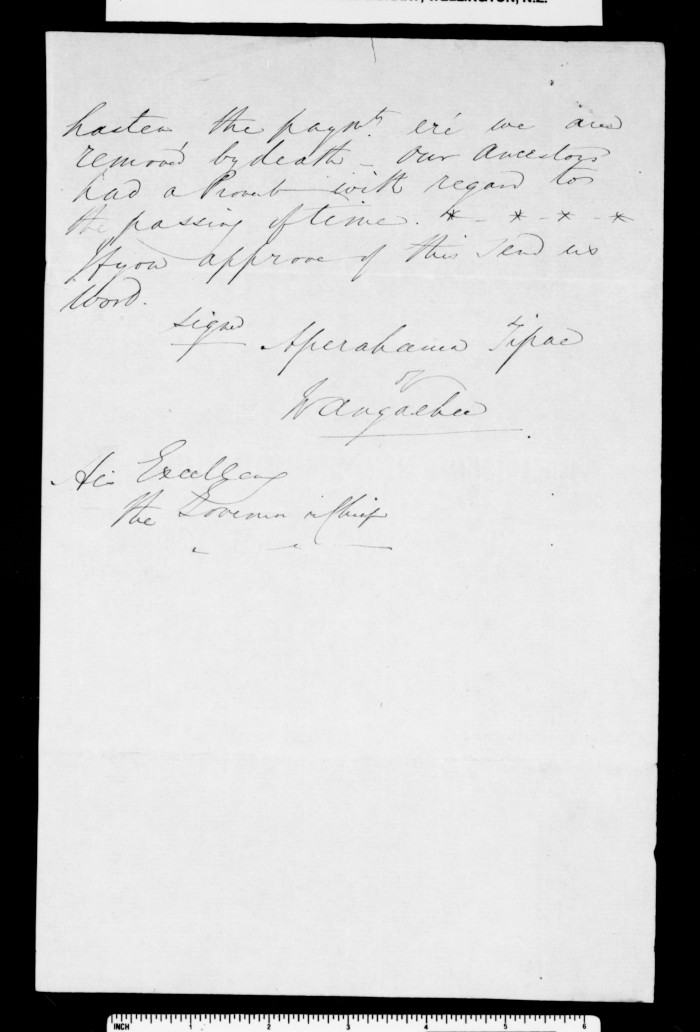 WELLINGTON, N.Z.
hasten the paymt. ere we are
removed by death – Our Ancestors
had a Proverb with regard to
the passing of time. * – * – * – *
If you approve of this send us
Word.
signed Aperahama Tipae
of
Wangaehu
His Excellency
the Governor in Chief
INCH 1 2 3 4 5 6